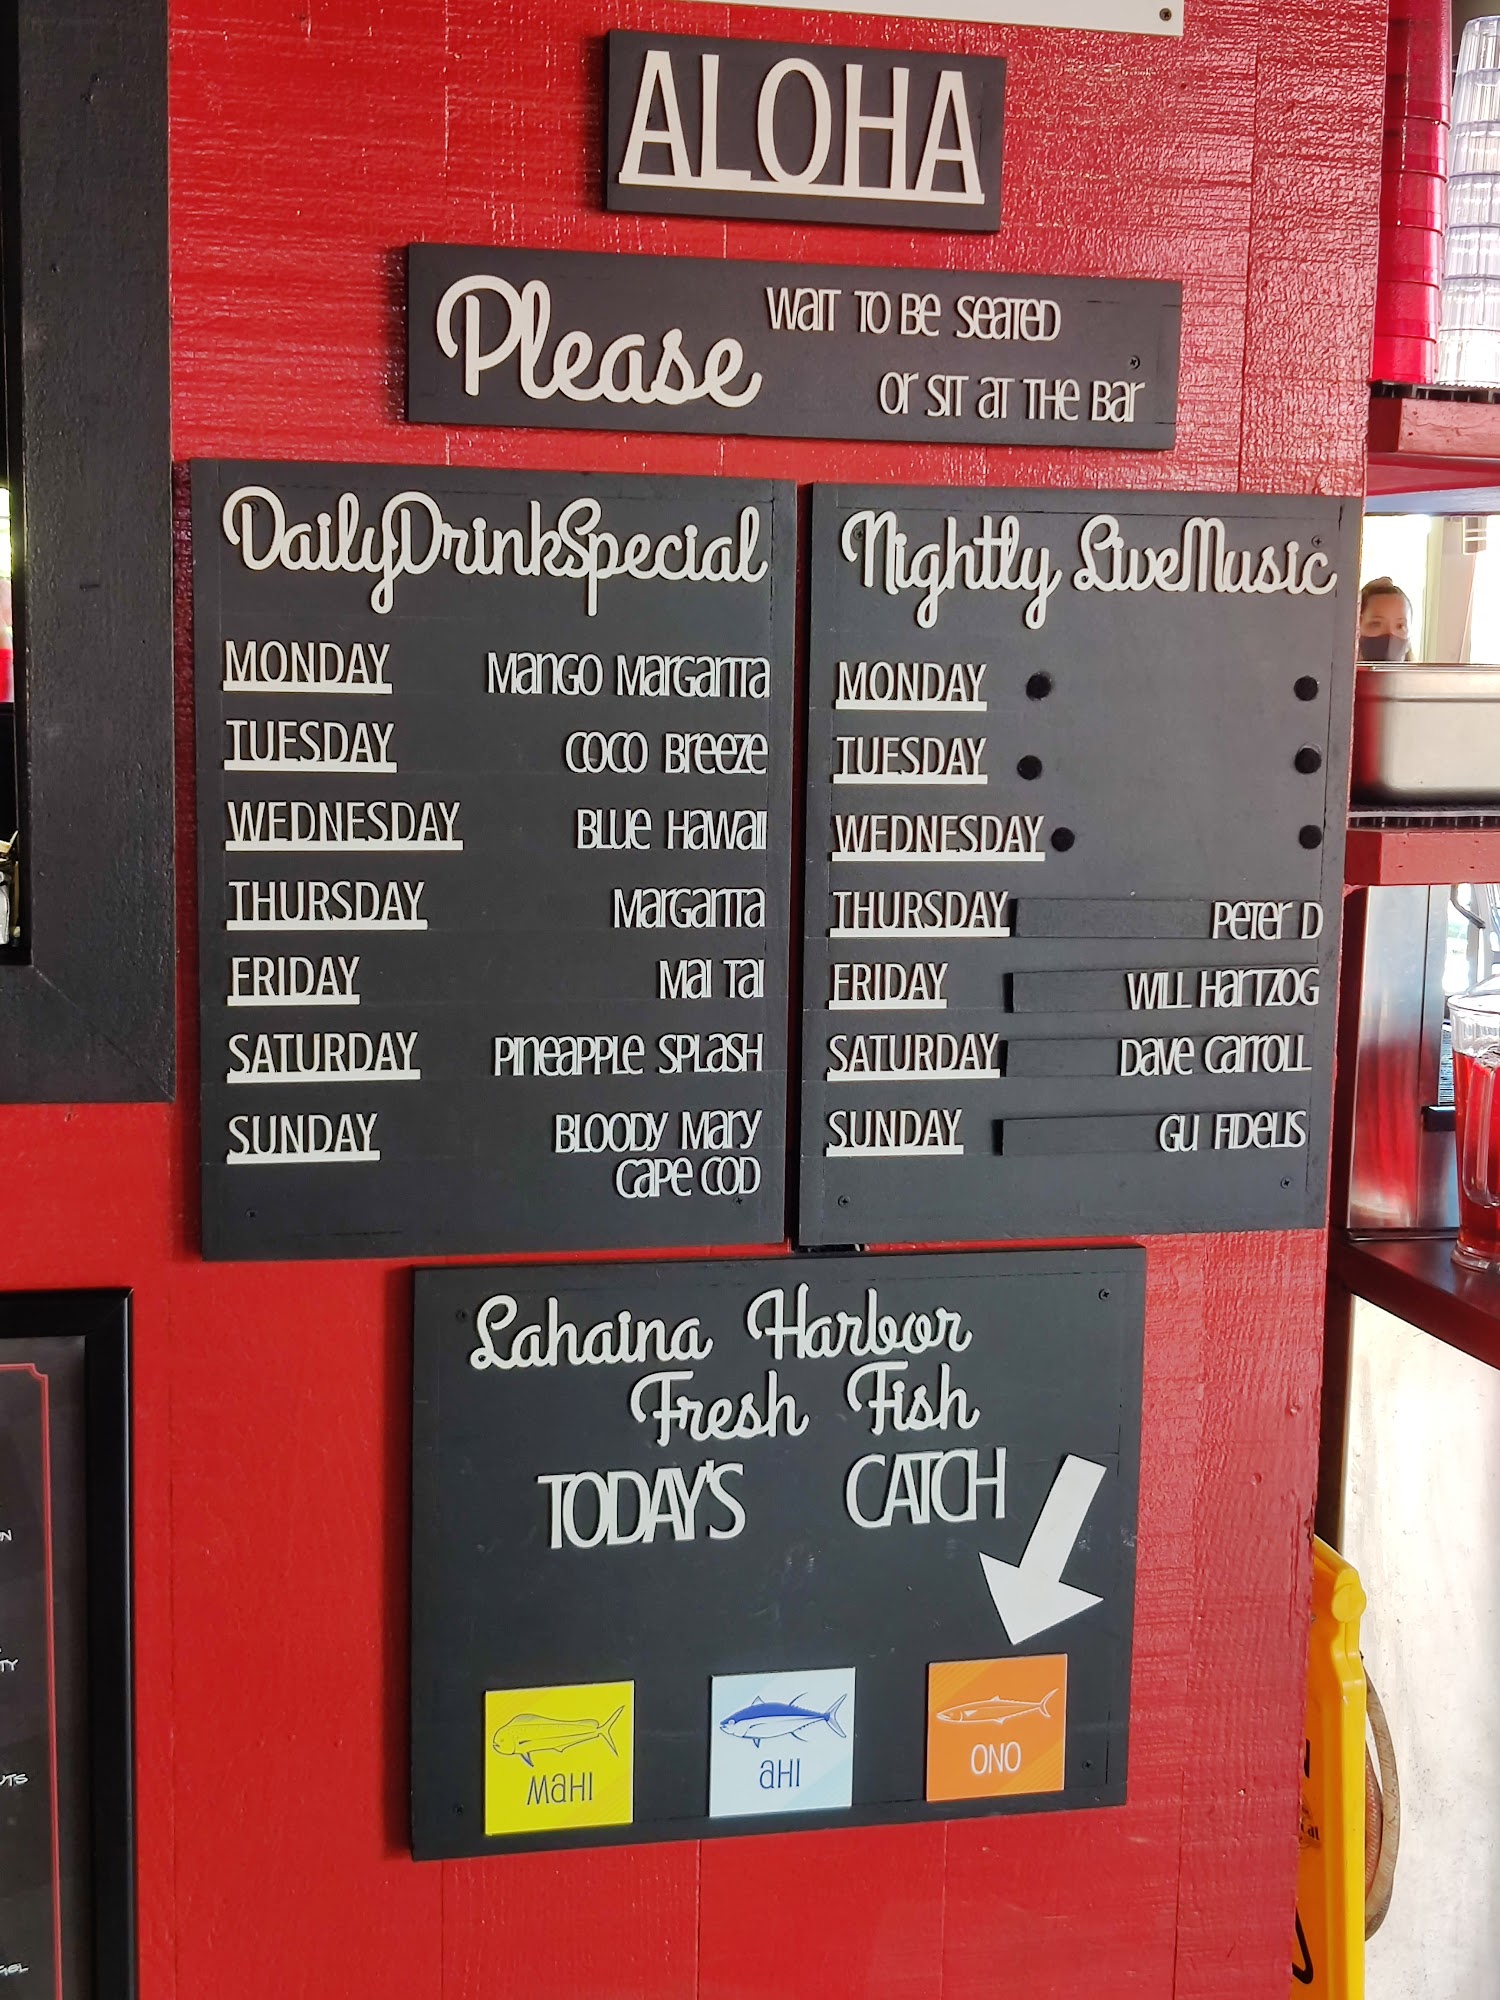 ALOHA
Please WAIT TO BE SEATED
OR SIT AT THE BAR
DailyDrinkSpecial
MONDAY MANGO MARGARITA
TUESDAY COCO BREEZE
WEDNESDAY BLUE HAWAII
THURSDAY MARGARITA
FRIDAY MAI TAI
SATURDAY PINEAPPLE SPLASH
SUNDAY BLOODY MARY
CAPE COD
Nightly LiveMusic
MONDAY
TUESDAY
WEDNESDAY
THURSDAY PETER D
FRIDAY WILL HARTZOG
SATURDAY DAVE CARROLL
SUNDAY GU FIDELIS
Lahaina Harbor
Fresh Fish
TODAY'S CATCH
MAHI
AHI
ONO